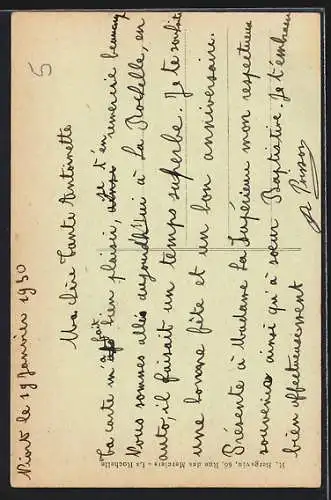 5
Niort le 19 Janvier 1930
Ma chère Tante Antoinette
Ta carte m'a fait bien plaisir, je t'en remercie beaucoup
Nous sommes allés aujourd'hui à La Rochelle, en
auto, il faisait un temps superbe. Je te souhaite
une bonne fête et un bon anniversaire.
Présente à Madame La Supérieure mon respectueux
souvenir ainsi qu'à sœur Baptistine. Je t'embrasse
bien affectueusement
R. Bergevin, 66, Rue des Merciers - La Rochelle